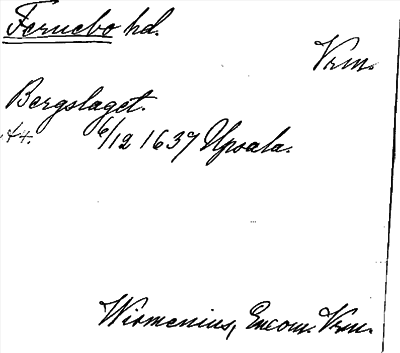 Fernebo hd.
Vrm.
Bergslaget.
At. 6/12 1637 Upsala.
Wismenius, Encom. Vrm.